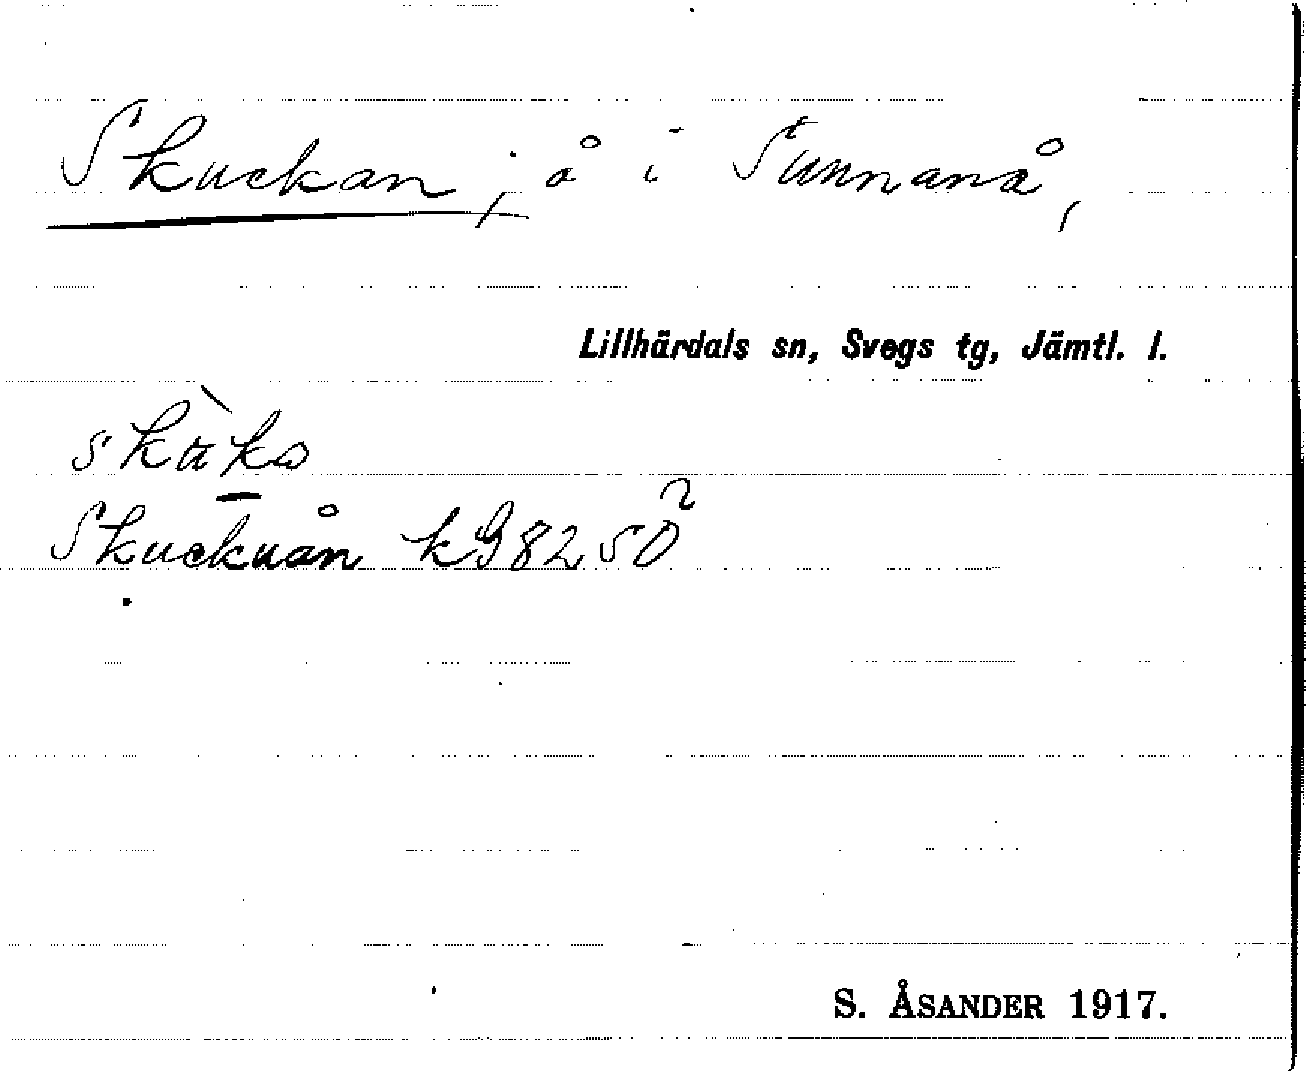 Skuckan, å i Sunnanå,
Lillhärdals sn, Svegs tg, Jämtl. l.
Skuckuån k 98250
S. ÅSANDER 1917.